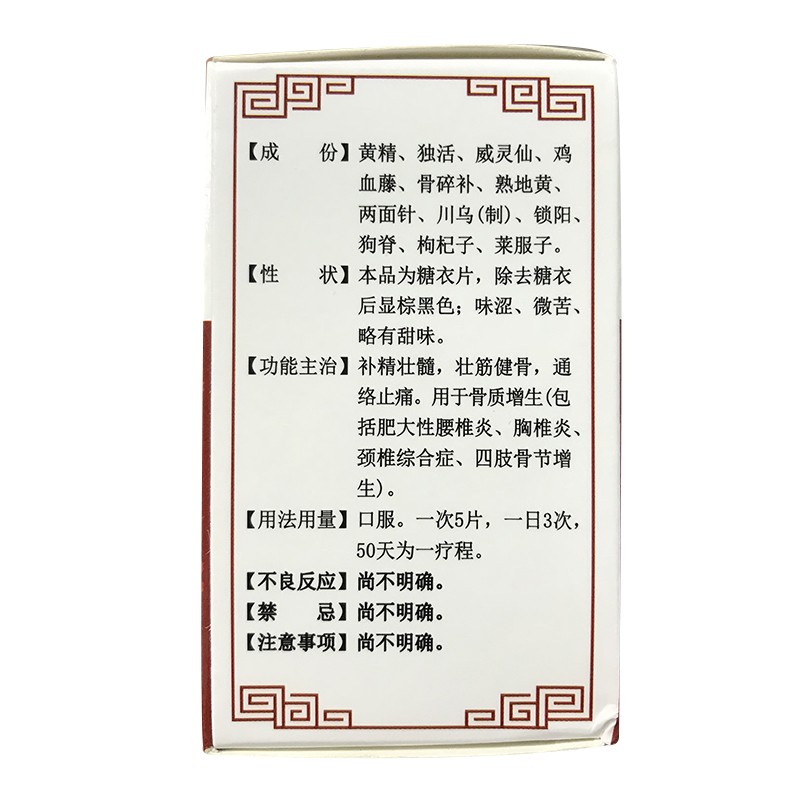 【成　　份】黄精、独活、威灵仙、鸡
血藤、骨碎补、熟地黄、
两面针、川乌(制)、锁阳、
狗脊、枸杞子、莱服子。
【性　　状】本品为糖衣片，除去糖衣
后显棕黑色；味涩、微苦、
略有甜味。
【功能主治】补精壮髓，壮筋健骨，通
络止痛。用于骨质增生(包
括肥大性腰椎炎、胸椎炎、
颈椎综合症、四肢骨节增
生)。
【用法用量】口服。一次5片，一日3次，
50天为一疗程。
【不良反应】尚不明确。
【禁　　忌】尚不明确。
【注意事项】尚不明确。